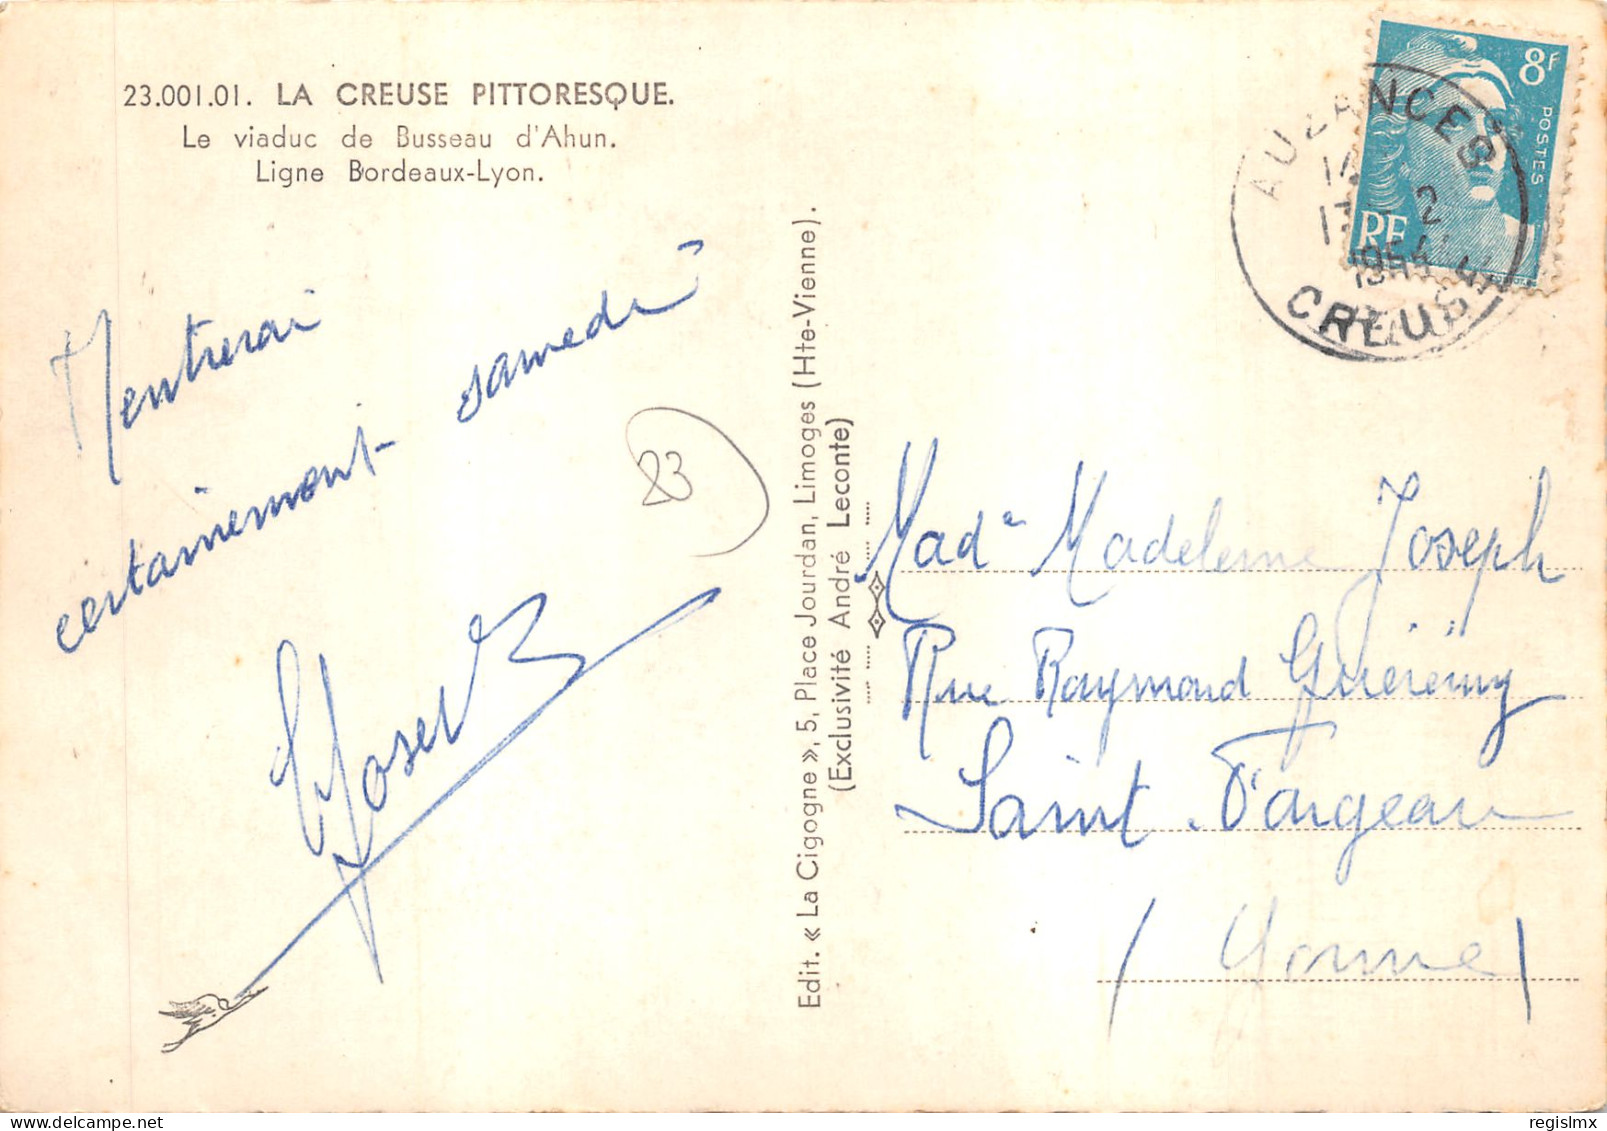 23.001.01. LA CREUSE PITTORESQUE.
Le viaduc de Busseau d'Ahun.
Ligne Bordeaux-Lyon.
certainement samedi
23
Edit. « La Cigogne », 5, Place Jourdan, Limoges (Hte-Vienne).
(Exclusivité André Leconte)
8F
POSTES
RF
AUZANCES
CREUSE
Madᵉ Madeleine Joseph
Rue Raymond
Saint-Fargeau
(Yonne)
regislmx